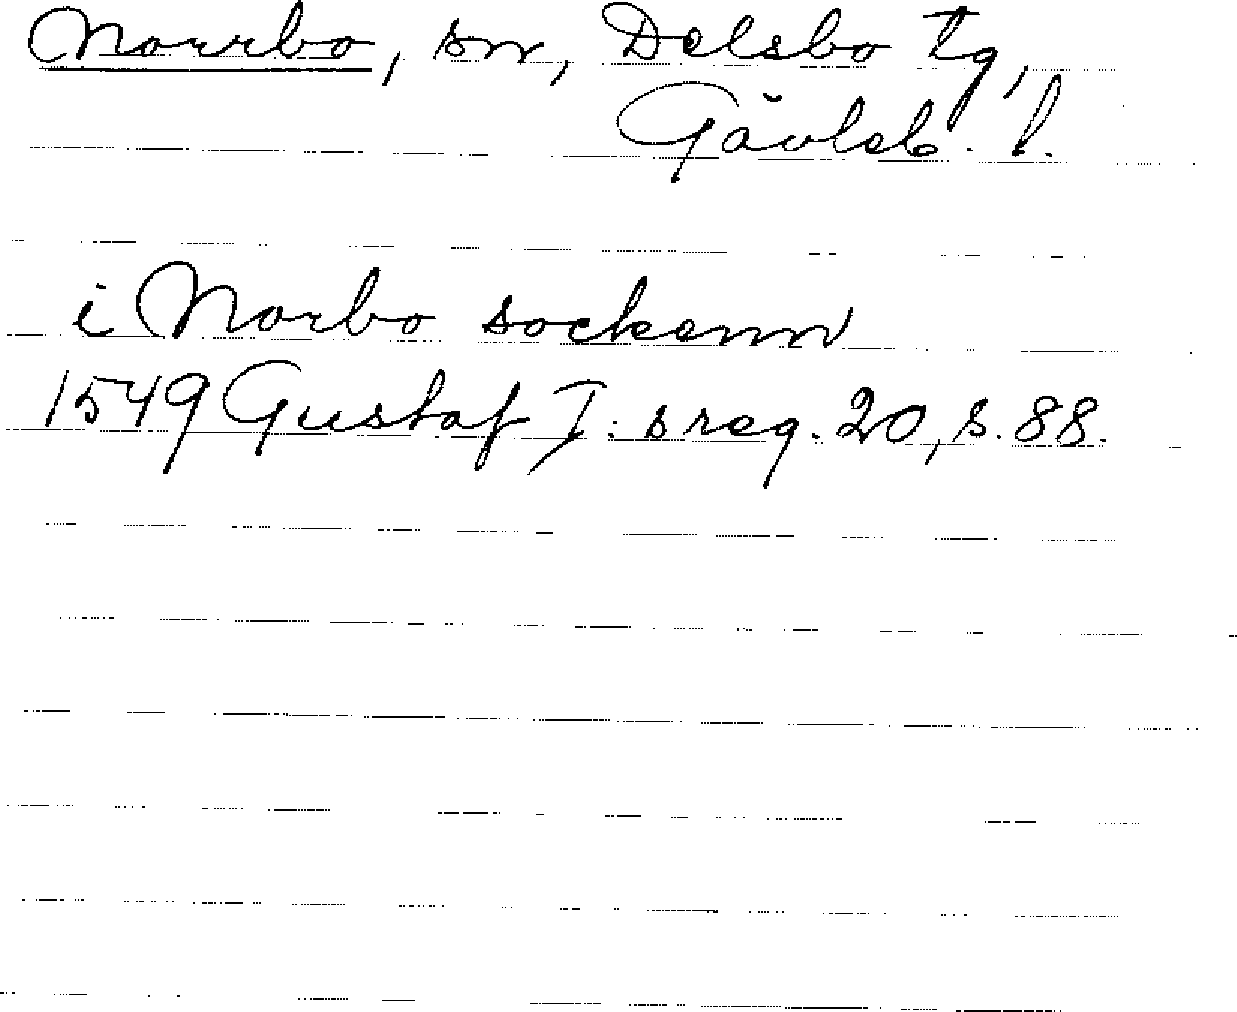 Norrbo, sn, Delsbo tg,
Gävleb. l.
i Norbo sockenn
1549 Gustaf I: s reg. 20, s. 88.